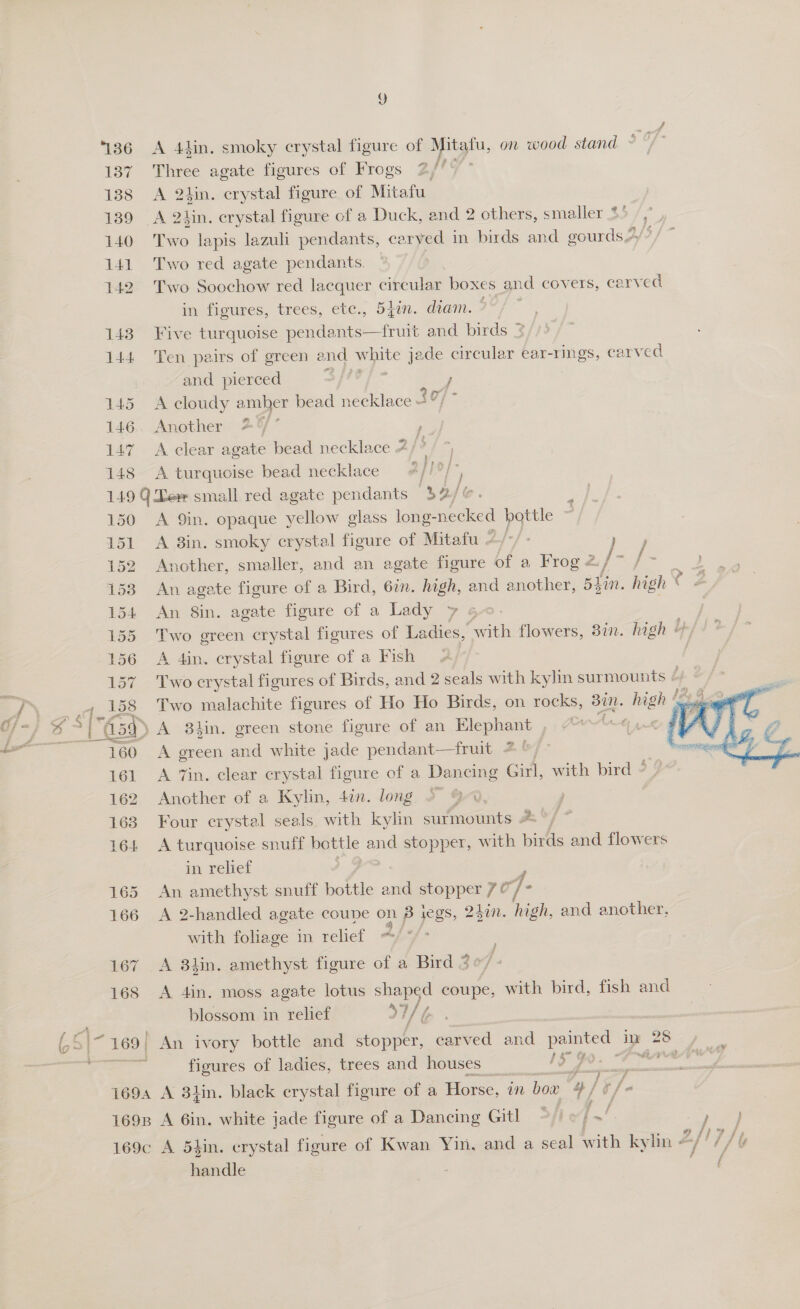 9
136 A 4½in. smoky crystal figure of Mitafu, on wood stand
137 Three agate figures of Frogs
138 A 2½in. crystal figure of Mitafu
139 A 2½in. crystal figure of a Duck, and 2 others, smaller
140 Two lapis lazuli pendants, carved in birds and gourds
141 Two red agate pendants
142 Two Soochow red lacquer circular boxes and covers, carved
in figures, trees, etc., 5¼in. diam.
143 Five turquoise pendants—fruit and birds
144 Ten pairs of green and white jade circular ear-rings, carved
and pierced
145 A cloudy amber bead necklace 30/-
146 Another
147 A clear agate bead necklace
148 A turquoise bead necklace
149 9 Ten small red agate pendants 32/6.
150 A 9in. opaque yellow glass long-necked bottle
151 A 3in. smoky crystal figure of Mitafu 2/-/-
152 Another, smaller, and an agate figure of a Frog 2/-/-
153 An agate figure of a Bird, 6in. high, and another, 5½in. high
154 An 8in. agate figure of a Lady
155 Two green crystal figures of Ladies, with flowers, 3in. high
156 A 4in. crystal figure of a Fish
157 Two crystal figures of Birds, and 2 seals with kylin surmounts
158 Two malachite figures of Ho Ho Birds, on rocks, 3in. high
159 A 3½in. green stone figure of an Elephant
160 A green and white jade pendant—fruit
161 A 7in. clear crystal figure of a Dancing Girl, with bird
162 Another of a Kylin, 4in. long
163 Four crystal seals with kylin surmounts
164 A turquoise snuff bottle and stopper, with birds and flowers
in relief
165 An amethyst snuff bottle and stopper 70/-
166 A 2-handled agate coupe on 3 legs, 2½in. high, and another,
with foliage in relief
167 A 3½in. amethyst figure of a Bird 30/-
168 A 4in. moss agate lotus shaped coupe, with bird, fish and
blossom in relief 37/6
169 An ivory bottle and stopper, carved and painted in 28
figures of ladies, trees and houses
169A A 3½in. black crystal figure of a Horse, in box
169B A 6in. white jade figure of a Dancing Gitl
169C A 5½in. crystal figure of Kwan Yin, and a seal with kylin 2/17/6
handle